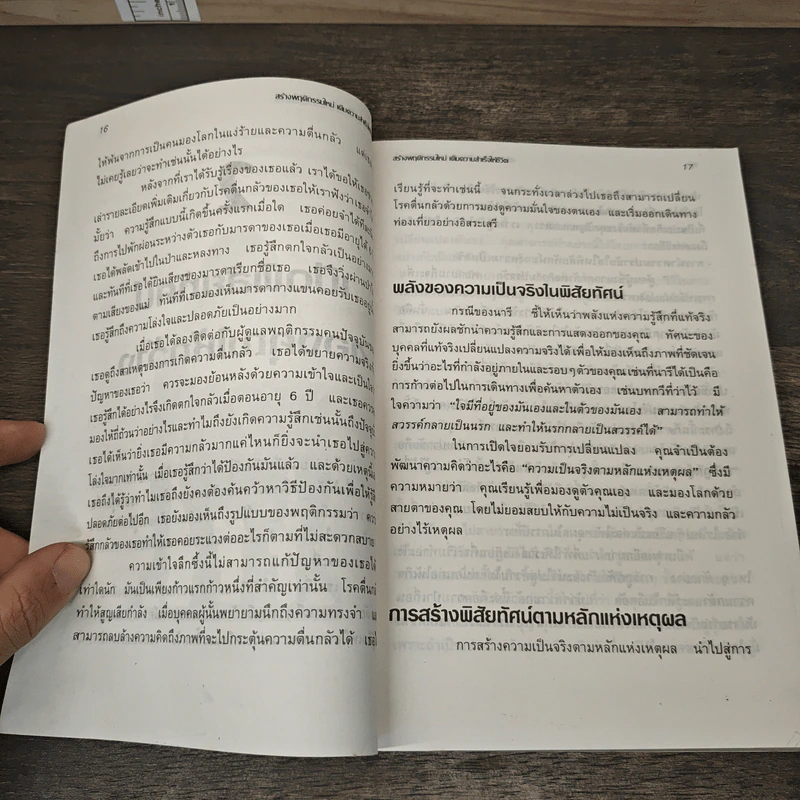 16
สร้างพฤติกรรมใหม่ เติมความสำเร็จ
ให้พ้นจากการเป็นคนมองโลกในแง่ร้ายและความตื่นกลัว
ไม่เคยรู้เลยว่าจะทำเช่นนั้นได้อย่างไร
หลังจากที่เราได้รับรู้เรื่องของเธอแล้ว เราได้ขอให้เธอ
เล่ารายละเอียดเพิ่มเติมเกี่ยวกับโรคตื่นกลัวของเธอให้เราฟังว่า
มั้ยว่า ความรู้สึกแบบนี้เกิดขึ้นครั้งแรกเมื่อใด เธอค่อยจำได้
ถึงการไปพักผ่อนระหว่างตัวเธอกับมารดาของเธอเมื่อเธอมีอายุได้
เธอได้พลัดเข้าไปในป่าและหลงทาง เธอรู้สึกตกใจกลัวเป็นอย่างมาก
และทันทีที่เธอได้ยินเสียงของมารดาเรียกชื่อเธอ เธอจึงวิ่งผ่านป่า
ตามเสียงของแม่ ทันทีที่เธอมองเห็นมารดากางแขนคอยรับเธออยู่
เธอรู้สึกถึงความโล่งใจและปลอดภัยเป็นอย่างมาก
เมื่อเธอได้ลองติดต่อกับผู้ดูแลพฤติกรรมคนปัจจุบัน
เธอดูถึงสาเหตุของการเกิดความตื่นกลัว เธอได้ขยายความจริง
ปัญหาของเธอว่า ควรจะมองย้อนหลังด้วยความเข้าใจและเป็น
เธอรู้สึกได้อย่างไรจึงเกิดตกใจกลัวเมื่อตอนอายุ 6 ปี และเธอควร
มองให้ถี่ถ้วนว่าอย่างไรและทำไมถึงยังเกิดความรู้สึกเช่นนั้นถึงปัจจุบัน
เธอได้เห็นว่ายิ่งเธอมีความกลัวมากแค่ไหนก็ยิ่งจะนำเธอไปสู่ความ
โล่งใจมากเท่านั้น เมื่อเธอรู้สึกว่าได้ป้องกันมันแล้ว และด้วยเหตุนี้
เธอถึงได้รู้ว่าทำไมเธอถึงยังคงต้องค้นคว้าหาวิธีป้องกันเพื่อให้รู้สึก
ปลอดภัยต่อไปอีก เธอยังมองเห็นถึงรูปแบบของพฤติกรรมว่า
รู้สึกกลัวของเธอทำให้เธอคอยระแวงต่ออะไรก็ตามที่ไม่สะดวกสบาย
ความเข้าใจลึกซึ้งนี้ไม่สามารถแก้ปัญหาของเธอได้
เท่าใดนัก มันเป็นเพียงก้าวแรกก้าวหนึ่งที่สำคัญเท่านั้น โรคตื่นกลัว
ทำให้สูญเสียกำลัง เมื่อบุคคลผู้นั้นพยายามนึกถึงความทรงจำ
สามารถลบล้างความคิดถึงภาพที่จะไปกระตุ้นความตื่นกลัวได้
สร้างพฤติกรรมใหม่ เติมความสำเร็จให้ชีวิต
17
เรียนรู้ที่จะทำเช่นนี้ จนกระทั่งเวลาล่วงไปเธอถึงสามารถเปลี่ยน
โรคตื่นกลัวด้วยการมองดูความมั่นใจของตนเอง และเริ่มออกเดินทาง
ท่องเที่ยวอย่างอิสระเสรี
พลังของความเป็นจริงในพิสัยทัศน์
กรณีของนารี ชี้ให้เห็นว่าพลังแห่งความรู้สึกที่แท้จริง
สามารถยังผลชักนำความรู้สึกและการแสดงออกของคุณ ทัศนะของ
บุคคลที่แท้จริงเปลี่ยนแปลงความจริงได้ เพื่อให้มองเห็นถึงภาพที่ชัดเจน
ยิ่งขึ้นว่าอะไรที่กำลังอยู่ภายในและรอบๆตัวของคุณ เช่นที่นารีได้เป็นคือ
การก้าวต่อไปในการเดินทางเพื่อค้นหาตัวเอง เช่นบทกวีที่ว่าไว้ มี
ใจความว่า “ใจมีที่อยู่ของมันเองและในตัวของมันเอง สามารถทำให้
สวรรค์กลายเป็นนรก และทำให้นรกกลายเป็นสวรรค์ได้”
ในการเปิดใจยอมรับการเปลี่ยนแปลง คุณจำเป็นต้อง
พัฒนาความคิดว่าอะไรคือ “ความเป็นจริงตามหลักแห่งเหตุผล” ซึ่งมี
ความหมายว่า คุณเรียนรู้เพื่อมองดูตัวคุณเอง และมองโลกด้วย
สายตาของคุณ โดยไม่ยอมสยบให้กับความไม่เป็นจริง และความกลัว
อย่างไร้เหตุผล
การสร้างพิสัยทัศน์ตามหลักแห่งเหตุผล
การสร้างความเป็นจริงตามหลักแห่งเหตุผล นำไปสู่การ